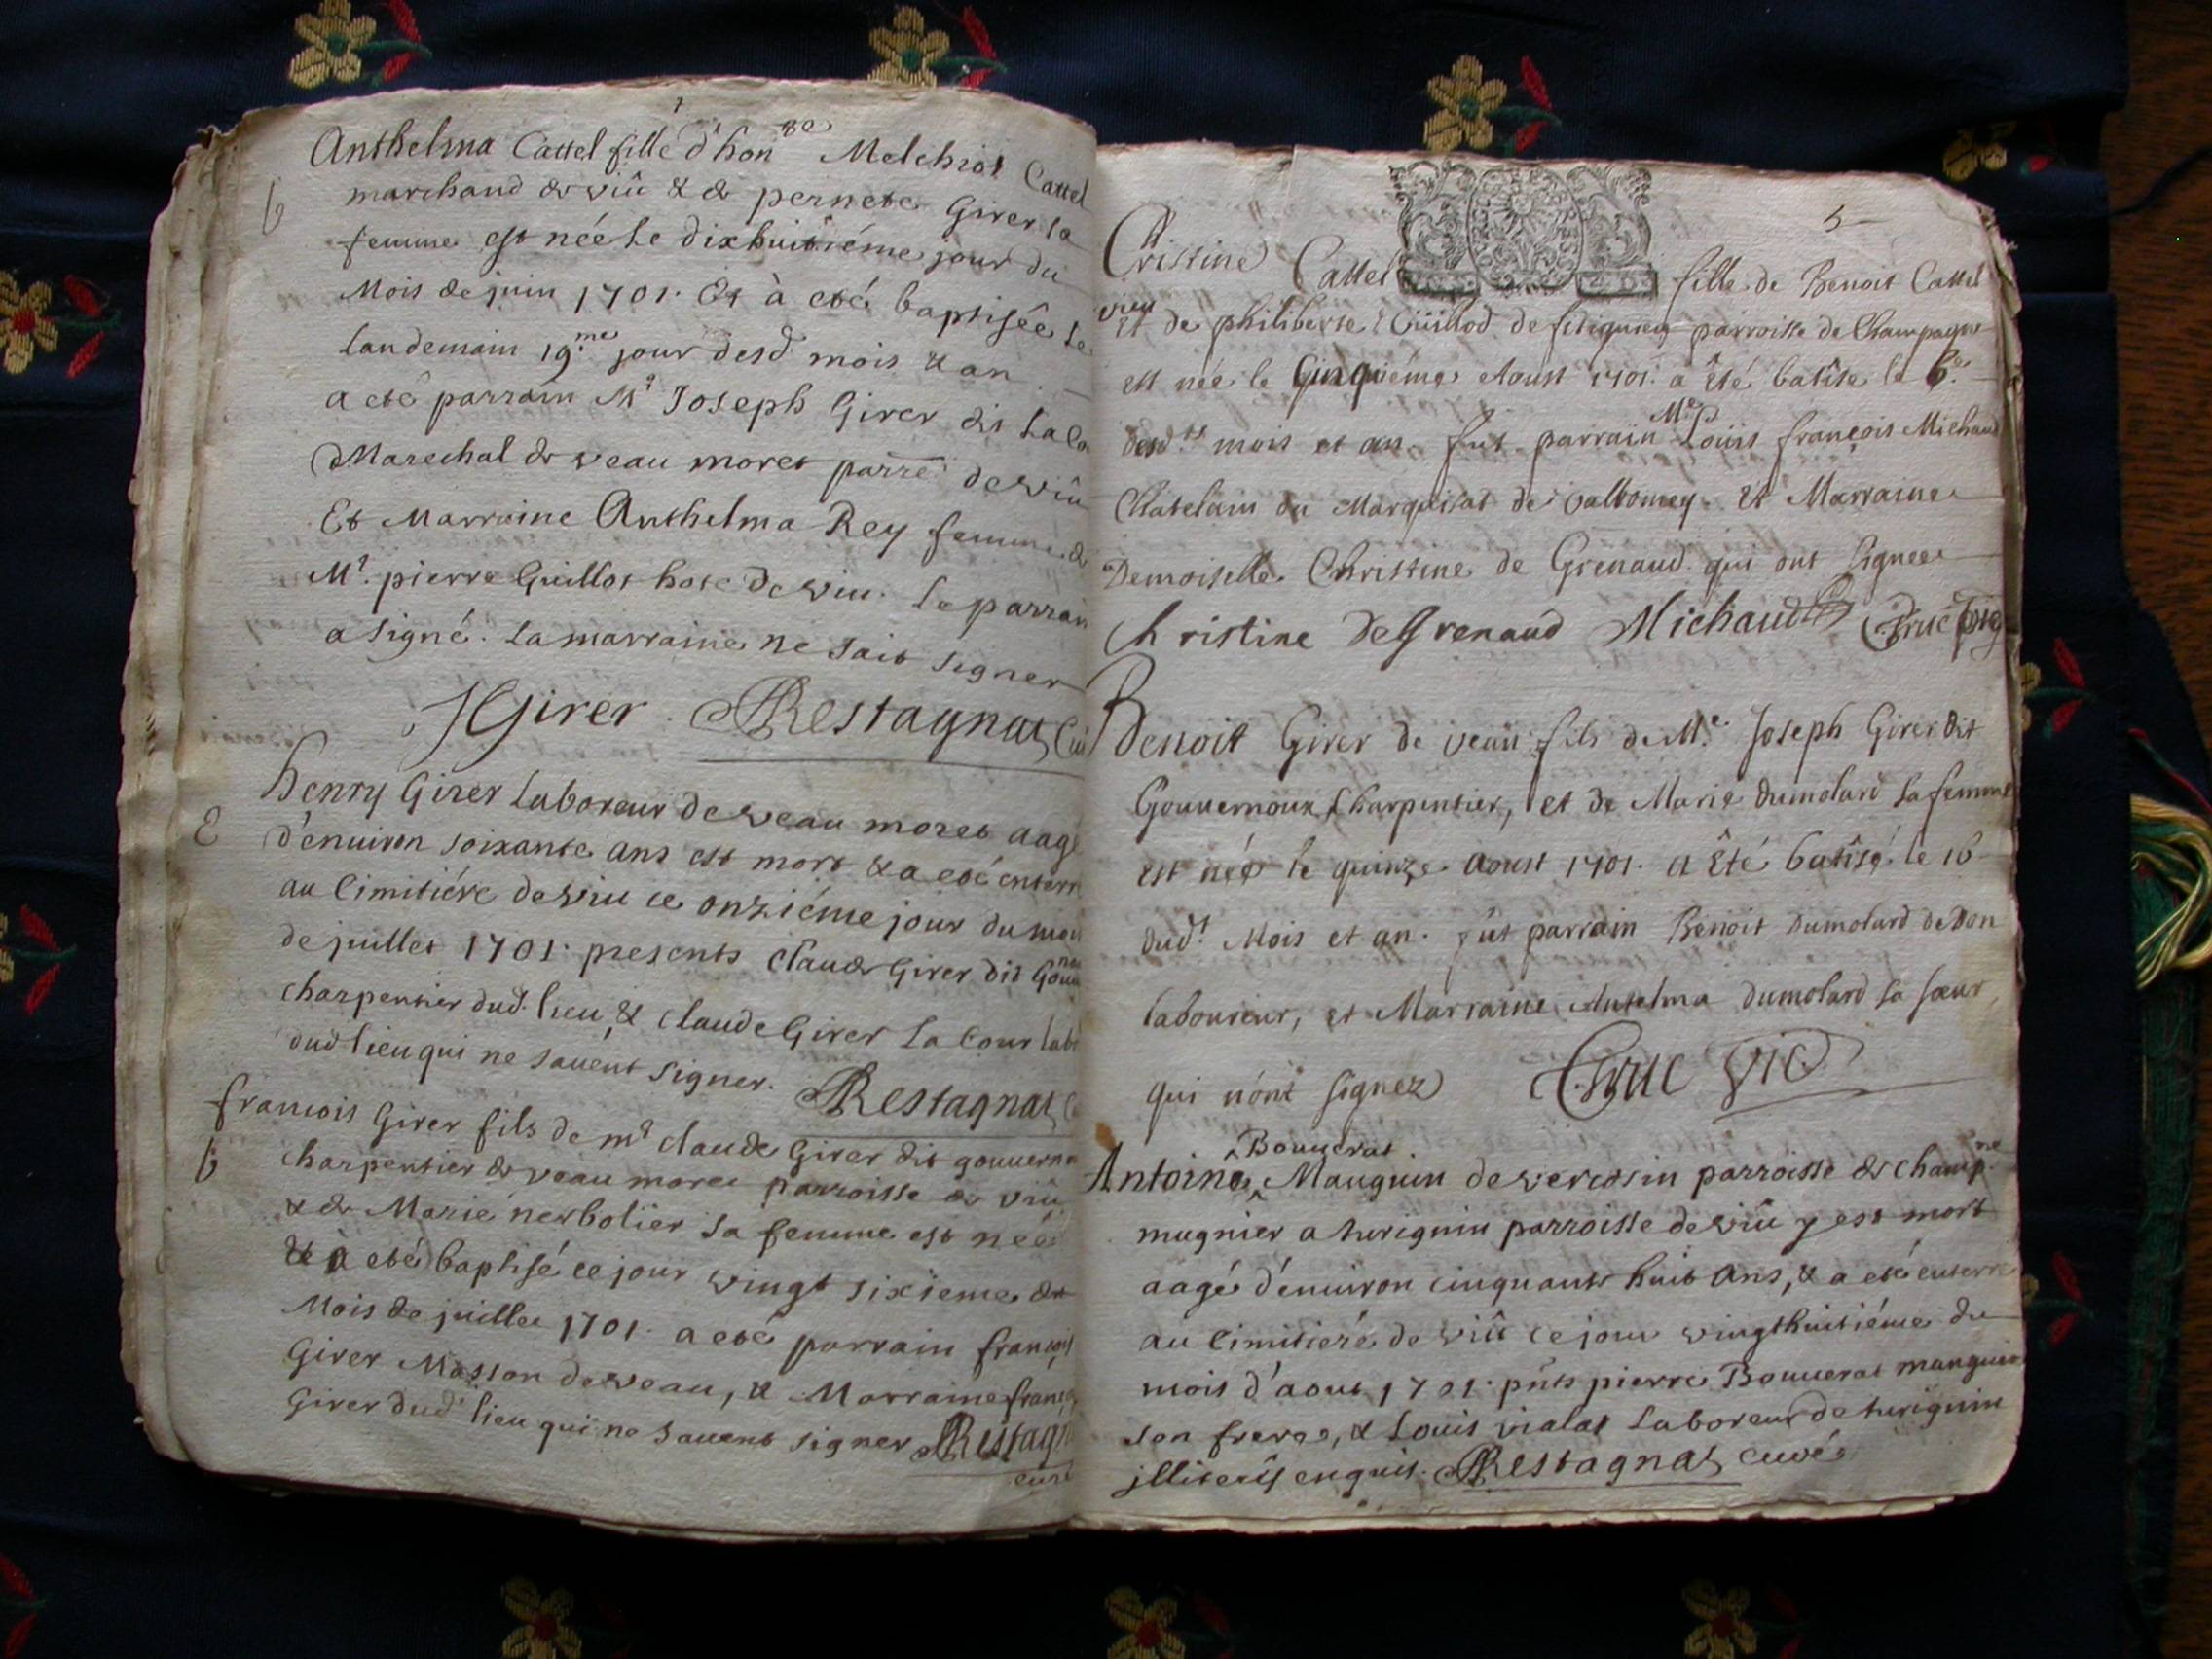 Anthelma Cattel fille d'hon ble Melchiot Cattel
b
marchand de viû & de pernete Girer sa
femme est née le dixhuitiéme jour du
Mois de juin 1701. Et à eté baptisée le
Landemain 19.me jour desd mois & an
a eté parrain Mr Joseph Girer dit
Marechal de veau moret parre de viû
Et Marraine Anthelma Rey femme de
Mr. pierre Guillot hote de viu. Le parrain
a signé. La marraine ne sait signer
JGirer. Restagnat Cu
henry Girer Laboreur de veau moret aagé
d'enuiron soixante ans est mort & a eté enterré
au Cimitiére de viu ce onziéme jour du mois
de juillet 1701. presents Claude Girer dit
charpentier dud. lieu, & claude Girer La Cour labo
dud lieu qui ne sauent signer. Restagnat
francois Girer fils de mr claude Girer dit gouuerno
b
charpentier de veau moret parroisse de viû
& de Marie nerbolier sa femme est née
& à eté baptisé ce jour vingt sixieme de
Mois de juillet 1701. a eté parrain françois
Girer Masson de veau, & Marraine franç
Girer dud lieu qui ne sauent signer Restagn
curé
5
Cristine Cattel fille de Benoit Cattel
vieu
et de philiberte Guillod de fitignieu parroisse de Champagne
est née le Cinquiéme Aoust 1701. a été batise le 6.e
desd.ts mois et an. fut parrain Me Loüis françois Michaud
Chatelain du Marquisat de valromey. Et Marraine
Demoiselle Christine de Grenaud qui ont signee
Christine de Grenaud Michaud Druc vic
Benoit Girer de veau fils de Me. Joseph Girer dit
Gouuernoux Charpentier, et de Marie Dumolard sa femme
est née le quinze Aoust 1701. a été batisé le 16
dud.t Mois et an. fut parrain Benoit Dumolard de Don
laboureur, et Marraine Antelma Dumolard sa sœur
qui n'ont signez Druc vic
Bouuerat
Antoine Manguin de vercosin parroisse de Champ.ne
mugnier a turignin parroisse de viû y est mort
aagé d'enuiron cinquante huit ans, & a eté enterré
au Cimitiere de viû ce jour vingthuitiéme du
mois d'aout 1701. pnts pierre Bouuerat manguin
son frere, & Louis vialat Laboreur de turignin
jlliterés enquis. Restagnat curé